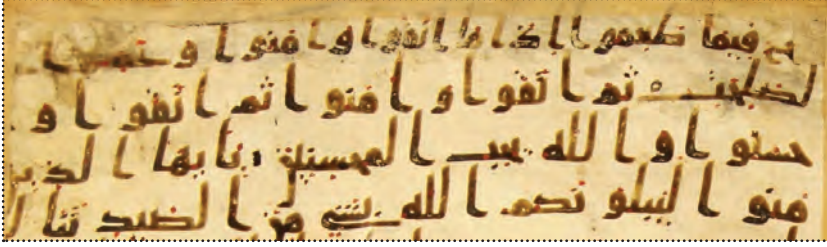 ح فيما طعموا اذا ما اتقوا وامنوا وعملوا ا
لصلحت ثم اتقوا وامنوا ثم اتقوا وا
حسنوا والله يحب المحسنين يايها الذين ا
منوا ليبلونكم الله بشي من الصيد تنا